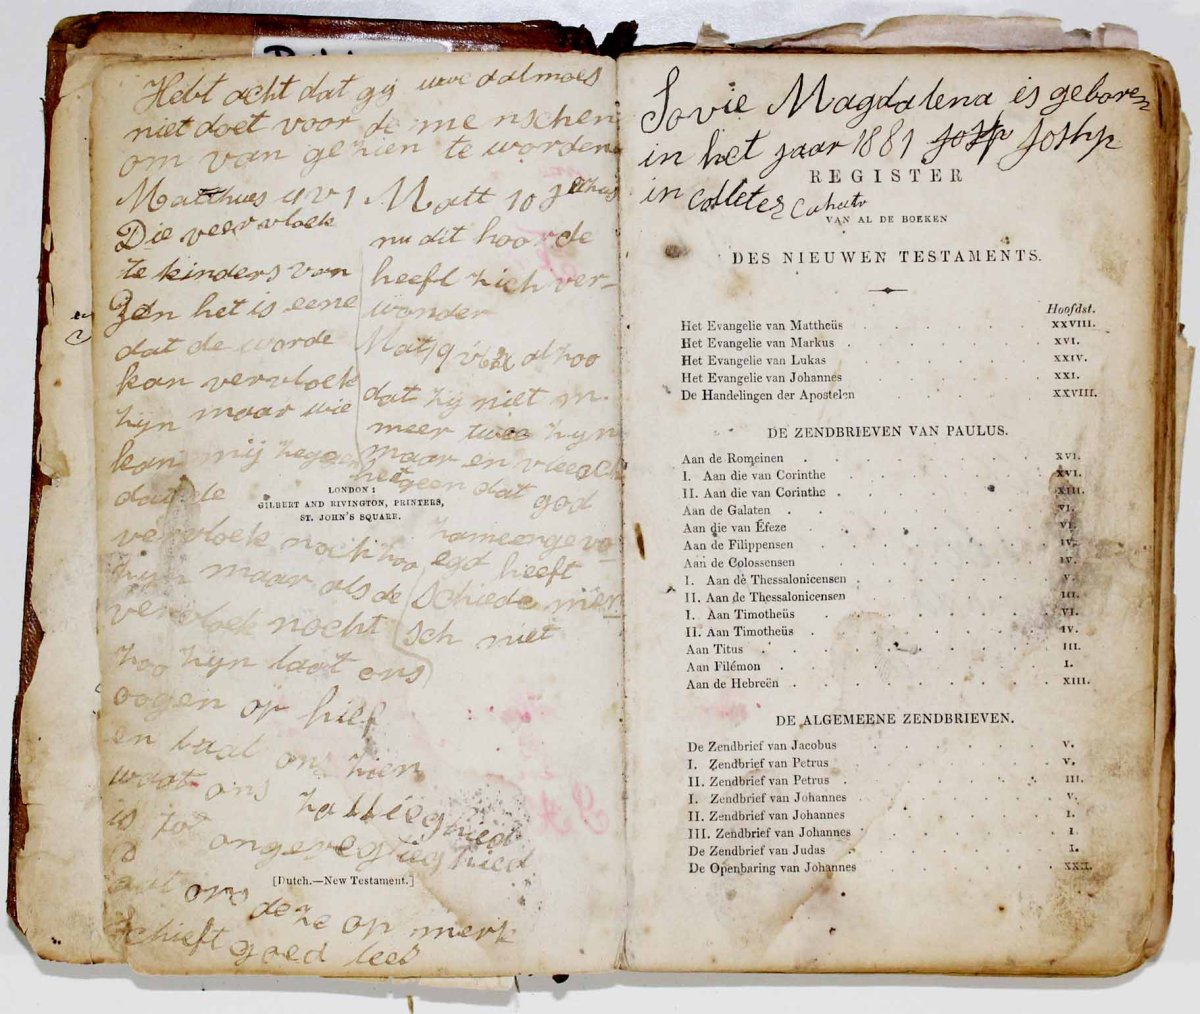 Hebt acht dat gij uwe aalmoes
niet doet voor de menschen
om van gezien te worden
Mattheus
Die vervloek
te kinders van
het is eene
dat de worde
kan vervloek
zijn maar wie
kan mij zeggen
dat de
vervloek noch zoo
zijn maar als de
vervloek nocht
zoo zijn laat ons
oogen op hief
en laat ons zien
waat ons zallieghied
is tot ongeregtieghied
ons deze op merk
schieft goed lees
Matt 10
nu dit hoorde
heeft zich ver-
wonder
Mat 19 v
dat zij niet m.
meer twee zijn
maar en vleesch
hetgeen dat god
zameengevo
egd heeft
schiede men
sch niet
LONDON:
GILBERT AND RIVINGTON, PRINTERS,
ST. JOHN'S SQUARE.
[Dutch.—New Testament.]
Sovie Magdalena is geboren
in het jaar 1881
in
REGISTER
VAN AL DE BOEKEN
DES NIEUWEN TESTAMENTS.
Hoofdst.
Het Evangelie van Mattheüs XXVIII.
Het Evangelie van Markus XVI.
Het Evangelie van Lukas XXIV.
Het Evangelie van Johannes XXI.
De Handelingen der Apostelen XXVIII.
DE ZENDBRIEVEN VAN PAULUS.
Aan de Romeinen XVI.
I. Aan die van Corinthe XVI.
II. Aan die van Corinthe XIII.
Aan de Galaten VI.
Aan die van Éfeze VI.
Aan de Filippensen IV.
Aan de Colossensen IV.
I. Aan de Thessalonicensen V.
II. Aan de Thessalonicensen III.
I. Aan Timotheüs VI.
II. Aan Timotheüs IV.
Aan Titus III.
Aan Filémon I.
Aan de Hebreën XIII.
DE ALGEMEENE ZENDBRIEVEN.
De Zendbrief van Jacobus V.
I. Zendbrief van Petrus V.
II. Zendbrief van Petrus III.
I. Zendbrief van Johannes V.
II. Zendbrief van Johannes I.
III. Zendbrief van Johannes I.
De Zendbrief van Judas I.
De Openbaring van Johannes XXII.